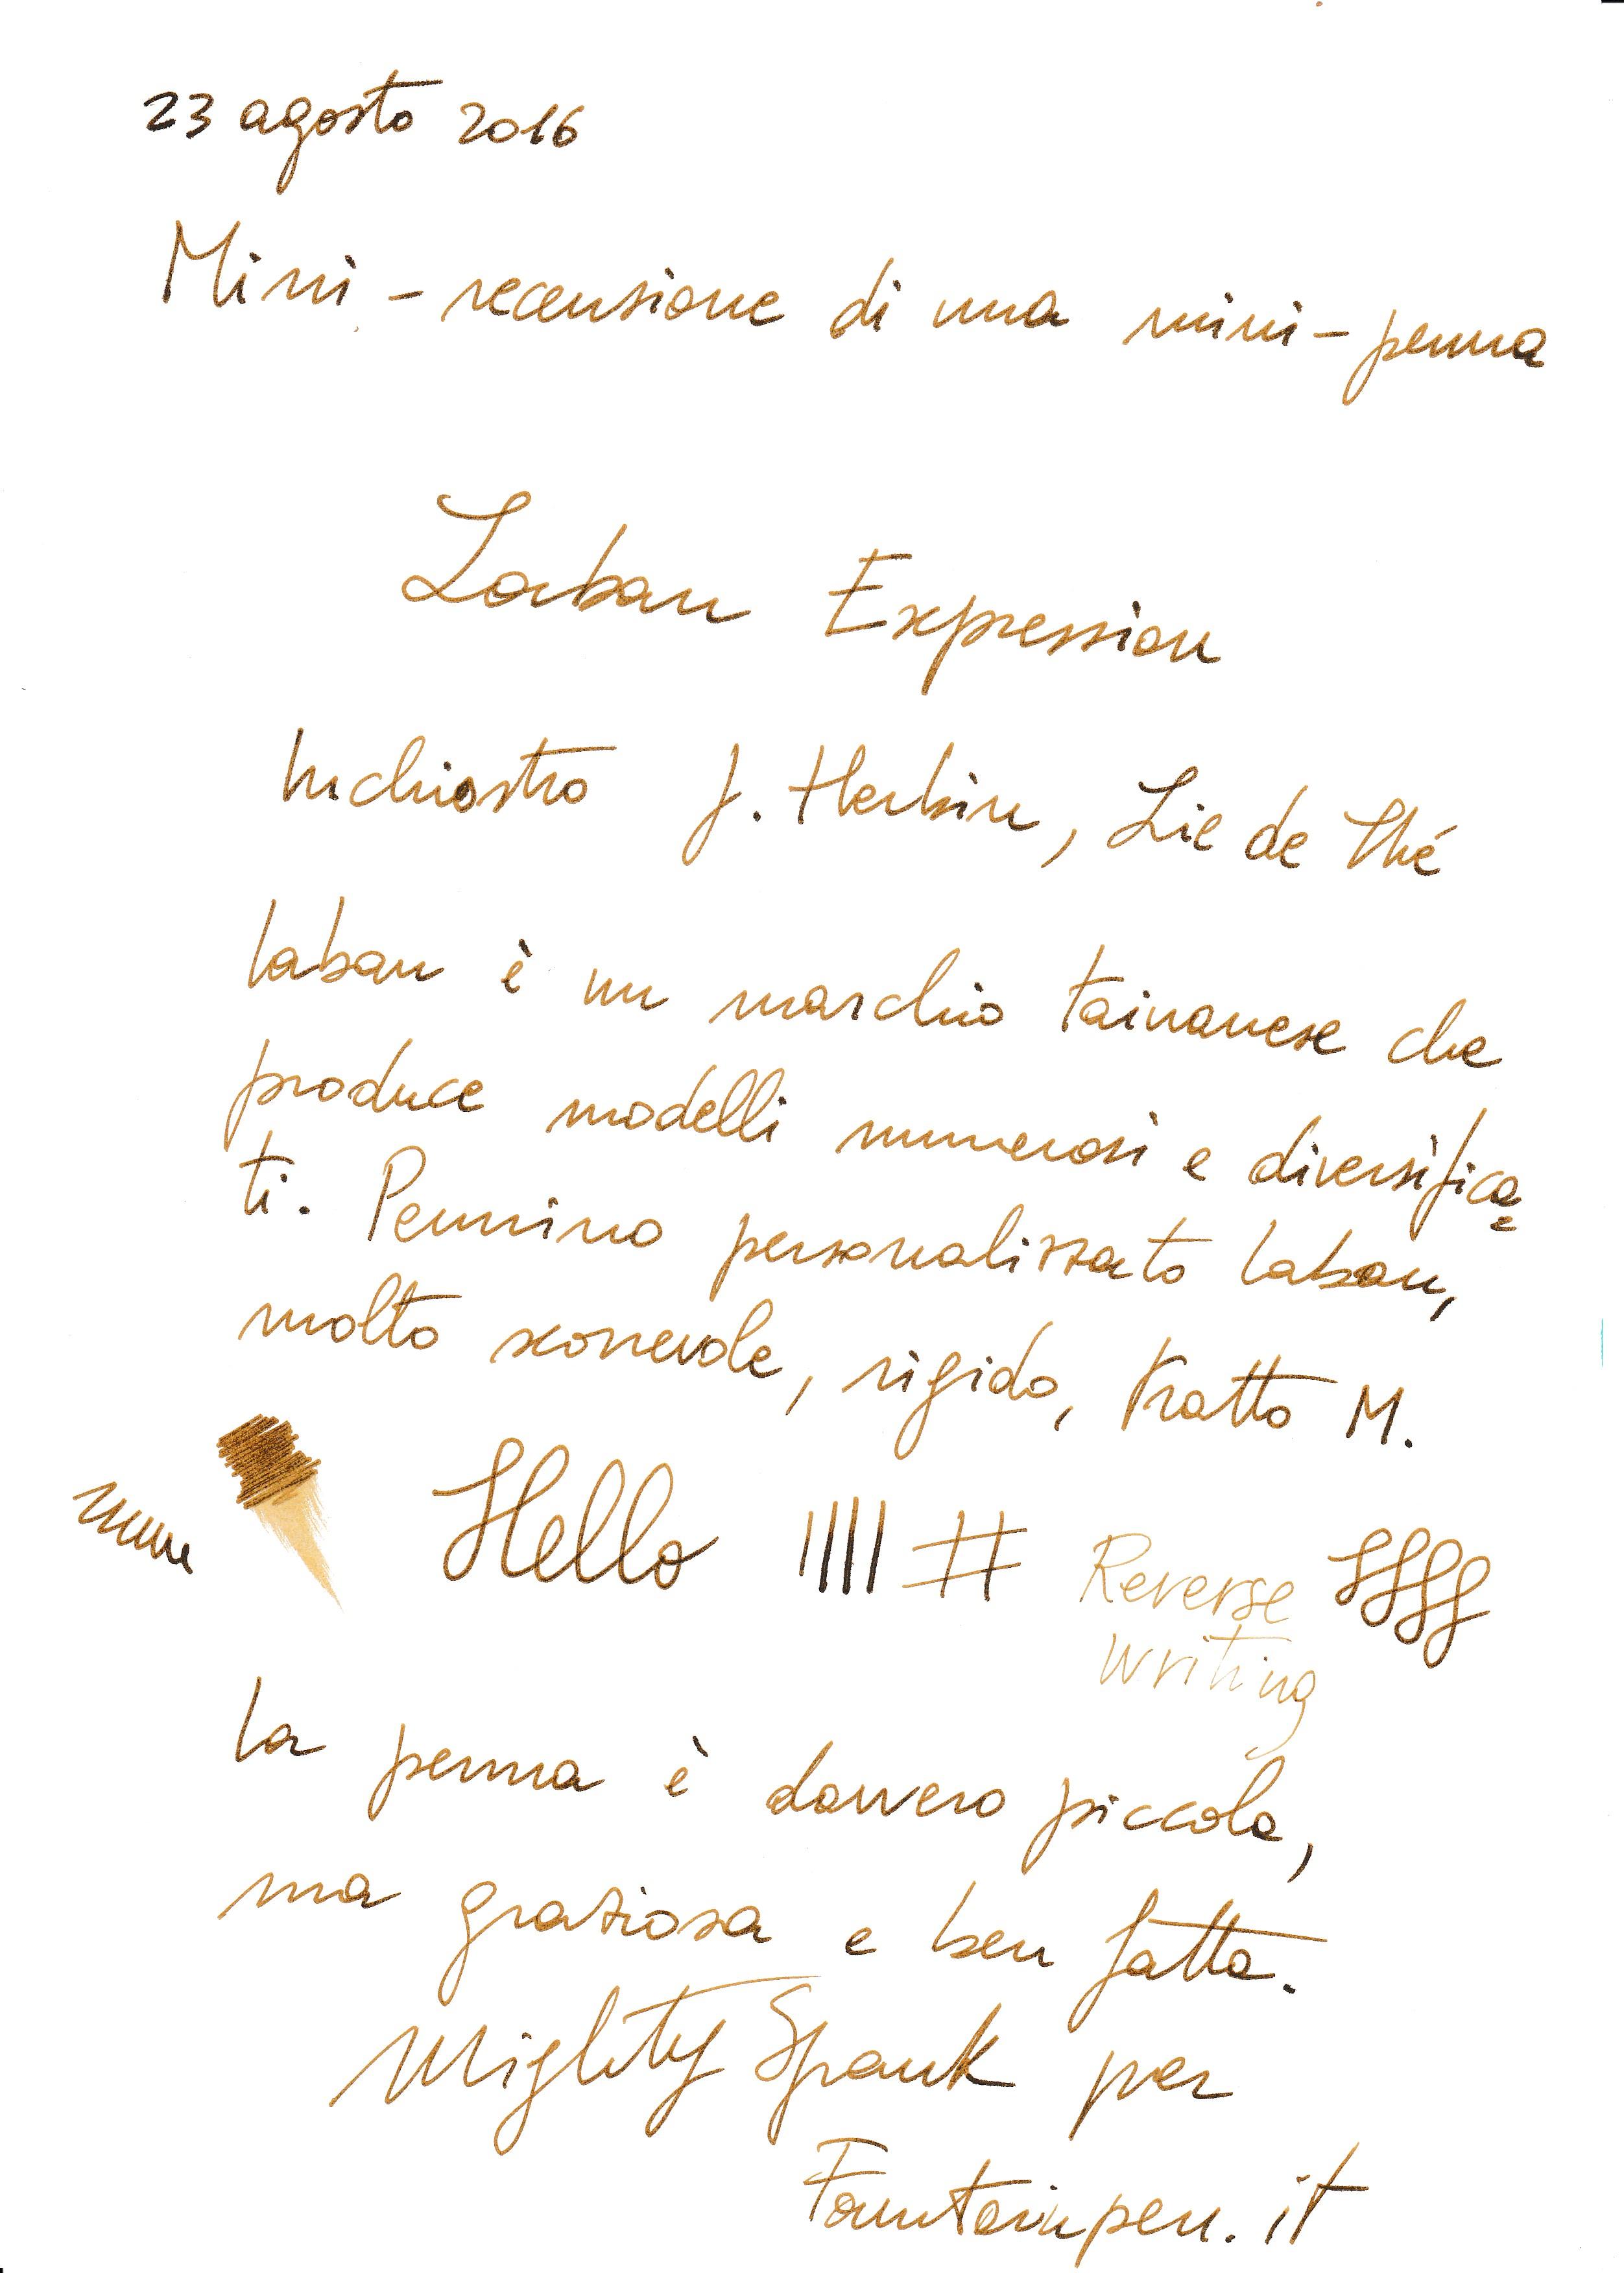 23 agosto 2016
Mini-recensione di una mini-penna
Laban Expression
Inchiostro J. Herbin, Lie de Thé
Laban è un marchio taiwanese che
produce modelli numerosi e diversifica=
ti. Pennino personalizzato Laban,
molto scorrevole, rigido, tratto M.
Hello |||| # Reverse
writing
La penna è davvero piccola,
ma graziosa e ben fatta.
Mighty Spank per
Fountainpen.it